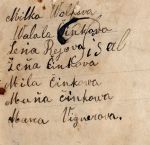 Milka Wolfova
Malala Činkova
Leňa Rejova
isal
Zeňa Činkova
Mila Činkowa
Maňa Činkowa
Mana Vignerova.